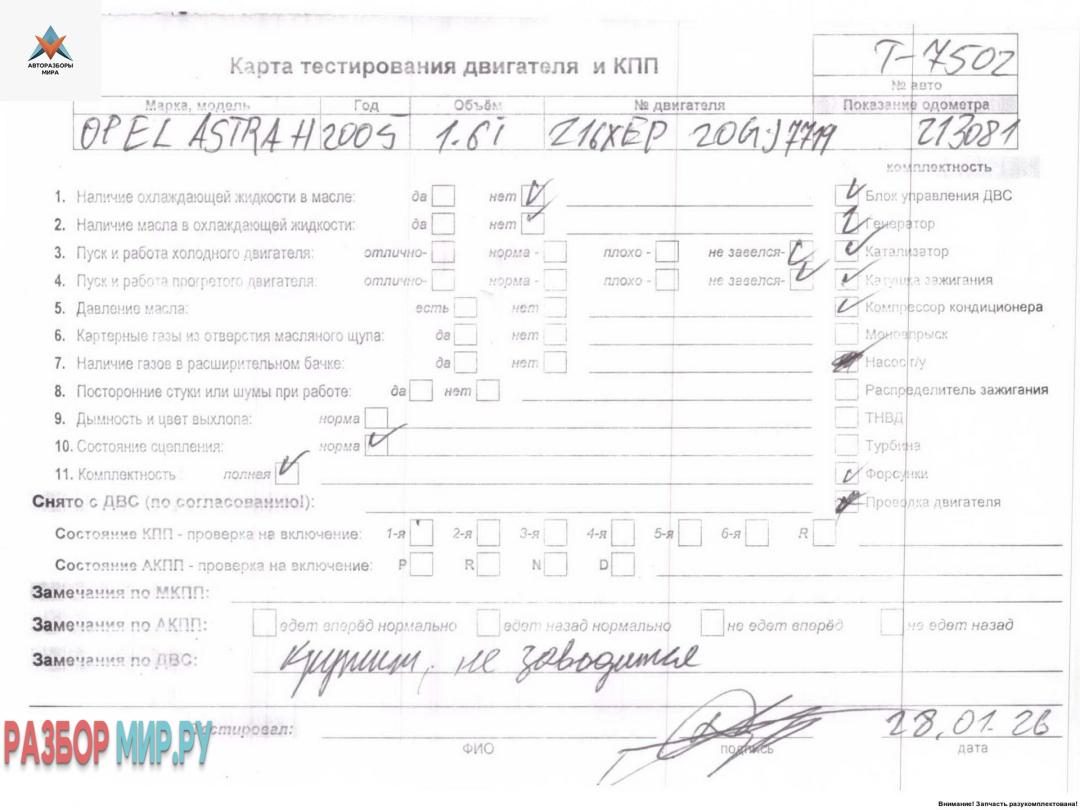 АВТОРАЗБОРЫ
МИРА
Карта тестирования двигателя и КПП
T-7502
№ авто
Марка, модель Год Объём № двигателя Показание одометра
OPEL ASTRA H 2005 1.6i Z16XEP 20GJ7719 213081
комплектность
1. Наличие охлаждающей жидкости в масле: да нет Блок управления ДВС
2. Наличие масла в охлаждающей жидкости: да нет Генератор
3. Пуск и работа холодного двигателя: отлично- норма - плохо - не завелся- Катализатор
4. Пуск и работа прогретого двигателя: отлично- норма - плохо - не завелся- Катушка зажигания
5. Давление масла: есть нет Компрессор кондиционера
6. Картерные газы из отверстия масляного щупа: да нет Моновпрыск
7. Наличие газов в расширительном бачке: да нет Насос г/у
8. Посторонние стуки или шумы при работе: да нет Распределитель зажигания
9. Дымность и цвет выхлопа: норма ТНВД
10. Состояние сцепления: норма Турбина
11. Комплектность : полная Форсунки
Снято с ДВС (по согласованию!): Проводка двигателя
Состояние КПП - проверка на включение: 1-я 2-я 3-я 4-я 5-я 6-я R
Состояние АКПП - проверка на включение: P R N D
Замечания по МКПП:
Замечания по АКПП: едет вперёд нормально едет назад нормально не едет вперёд не едет назад
Замечания по ДВС: крутит, не заводится
28.01.26
ФИО подпись дата
РАЗБОР МИР.РУ
Внимание! Запчасть разукомплектована!